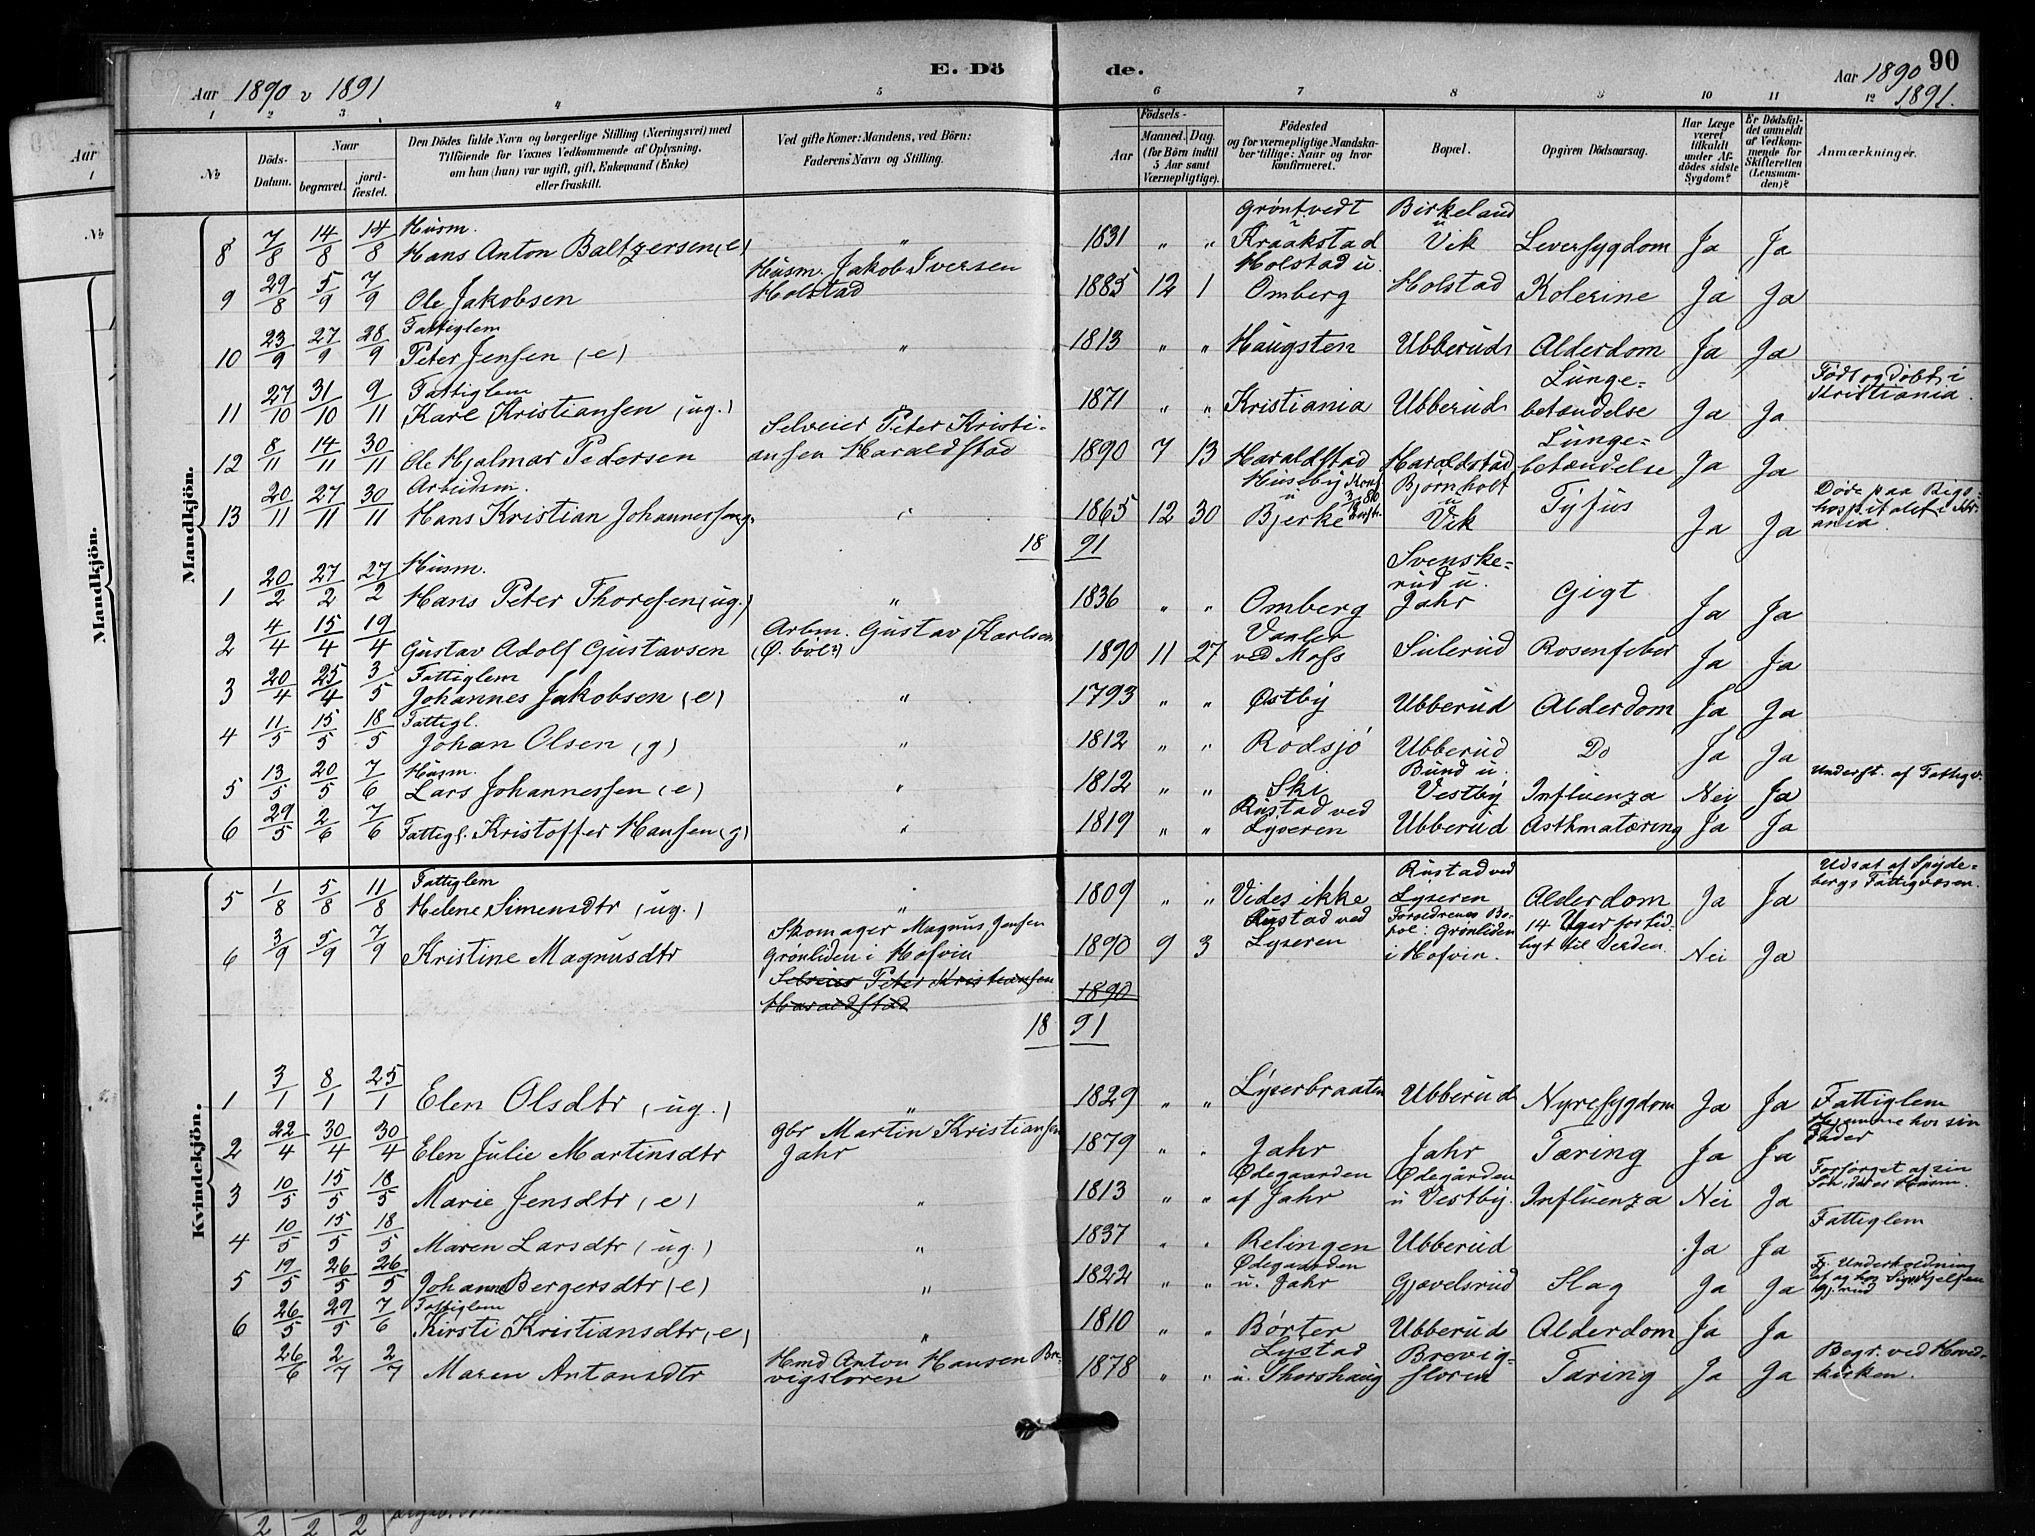 E. Dö de.
90
Aar 1890 & 1891
Aar 1890
1891.
1 2 3 4 5 6 7 8 9 10 11 12
№
Döds-Datum.
Naar
begravet.
jord-fæstet.
Den Dödes fulde Navn og borgerlige Stilling (Næringsvei) med
Tilföiende for Voxnes Vedkommende af Oplysning,
om han (hun) var ugift, gift, Enkemand (Enke)
eller fraskilt.
Ved gifte Koner: Mandens, ved Börn:
Faderens Navn og Stilling.
Födsels-
Aar
Maaned. Dag.
(for Börn indtil
5 Aar samt
Værnepligtige).
Födested
og for værnepligtige Mandska-
ber tillige: Naar og hvor
konfirmeret.
Bopæl.
Opgiven Dödsaarsag.
Har Læge
været
tilkaldt
under Af-
dödes sidste
Sygdom?
Er Dödsfal-
det anmeldt
af Vedkom-
mende for
Skifteretten
(Lensman-
den)?
Anmærkninger.
Mandkjön.
8 7/8 14/8 14/8 Husm. Hans Anton Baltzersen (e) " 1831 " " Grøntvedt u Kraakstad Birkeland u Vik Leversygdom Ja Ja
9 29/8 5/9 7/9 Ole Jakobsen Husm. Jakob Iversen Holstad 1885 12 1 Holstad u. Omberg Holstad Kolerine Ja Ja
10 23/9 27/9 28/9 Fattiglem Peter Jensen (e) " 1813 " " Haugsten Ubberud Alderdom Ja Ja
11 27/10 31/10 9/11 Fattiglem Karl Kristiansen (ug.) " 1871 " " Kristiania Ubberud Lunge-betændelse Ja Ja Født og døbt i Kristiania.
12 8/11 14/11 30/11 Ole Hjalmar Pedersen Selveier Peter Kristi-ansen Haraldstad 1890 7 13 Haraldstad Haraldstad Lunge-betændelse Ja Ja
13 20/11 27/11 30/11 Arbeidsm. Hans Kristian Johannessen 1865 12 30 Huseby u Bjerke Bjørnholt u Vik Tyfus Ja Ja Døde paa Rigs-hospitalet i
18 91
1 20/2 27/2 27/2 Husm. Hans Peter Thoresen (ug.) " 1836 " " Omberg Svenske-rud u. Jahr Gigt Ja Ja
2 4/4 15/4 19/4 Gustav Adolf Gustavsen Arbm. Gustav Karlsen 1890 11 27 Vaaler ved Moss Sulerud Rosenfeber Ja Ja
3 20/4 25/4 3/5 Fattiglem Johannes Jakobsen (e) " 1793 " " Østby Ubberud Alderdom Ja Ja
4 11/5 15/5 18/5 Fattigl. Johan Olsen (g) " 1812 " " Rødsjø Ubberud Do Ja Ja
5 13/5 20/5 7/6 Husm. Lars Johannessen (e) " 1812 " " Ski Bund u. Vestby Influenza Nei Ja Underst. af Fattigv.
6 29/5 2/6 7/6 Fattigl. Kristoffer Hansen (g) " 1819 " " Rustad ved Lyseren Ubberud Asthmatæring Ja Ja
Kvindekjön.
5 1/8 5/8 11/8 Fattiglem Helene Simensdtr (ug.) " 1809 " " Vides ikke Rustad ved Lyseren Alderdom Ja Ja Udsat af Spyde-bergs Fattigvæsen.
6 3/9 5/9 7/9 Kristine Magnusdtr Skomager Magnus Jensen Grønliden i Hofvin 1890 9 3 Rustad ved Lyseren Forældrenes Bo-pæl: Grønliden i Hofvin. 14 Uger for tid-ligt til Verden. Nei Ja
Selveier Peter Kristiansen Haraldstad 1890
18 91
1 3/1 8/1 25/1 Elen Olsdtr (ug.) " 1829 " " Lyserbraaten Ubberud Nyresygdom Ja Ja Fattiglem
2 22/4 30/4 30/4 Elen Julie Martinsdtr gbr Martin Kristiansen Jahr 1879 " " Jahr Jahr Tæring Ja Ja Hjemme hos sin Fader
3 10/5 15/5 18/5 Marie Jensdtr (e) " 1813 " " Ødegaarden af Jahr Ødegården u Vestby. Influenza Nei Ja Forsørget af sin Søn, der er Husm.
4 10/5 15/5 18/5 Maren Larsdtr (ug.) " 1837 " " Relingen Ubberud Ja Ja Fattiglem
5 19/5 26/5 26/5 Johanne Bergersdtr (e) " 1822 " " Ødegaarden u. Jahr Gjævelsrud Slag Ja Ja Underholdning af og hos
6 26/5 29/5 7/6 Fattiglem Kirsti Kristiansdtr (e) " 1810 " " Børter Ubberud Alderdom Ja Ja
26/6 2/7 2/7 Maren Antonsdtr Hmd Anton Hansen Bre-vigsloren 1878 " " Lystad u. Thorshaug Brevig-sloren Tæring Ja Ja Begr. ved Hoved-kirken.
Aar
1
№
Mandkjön.